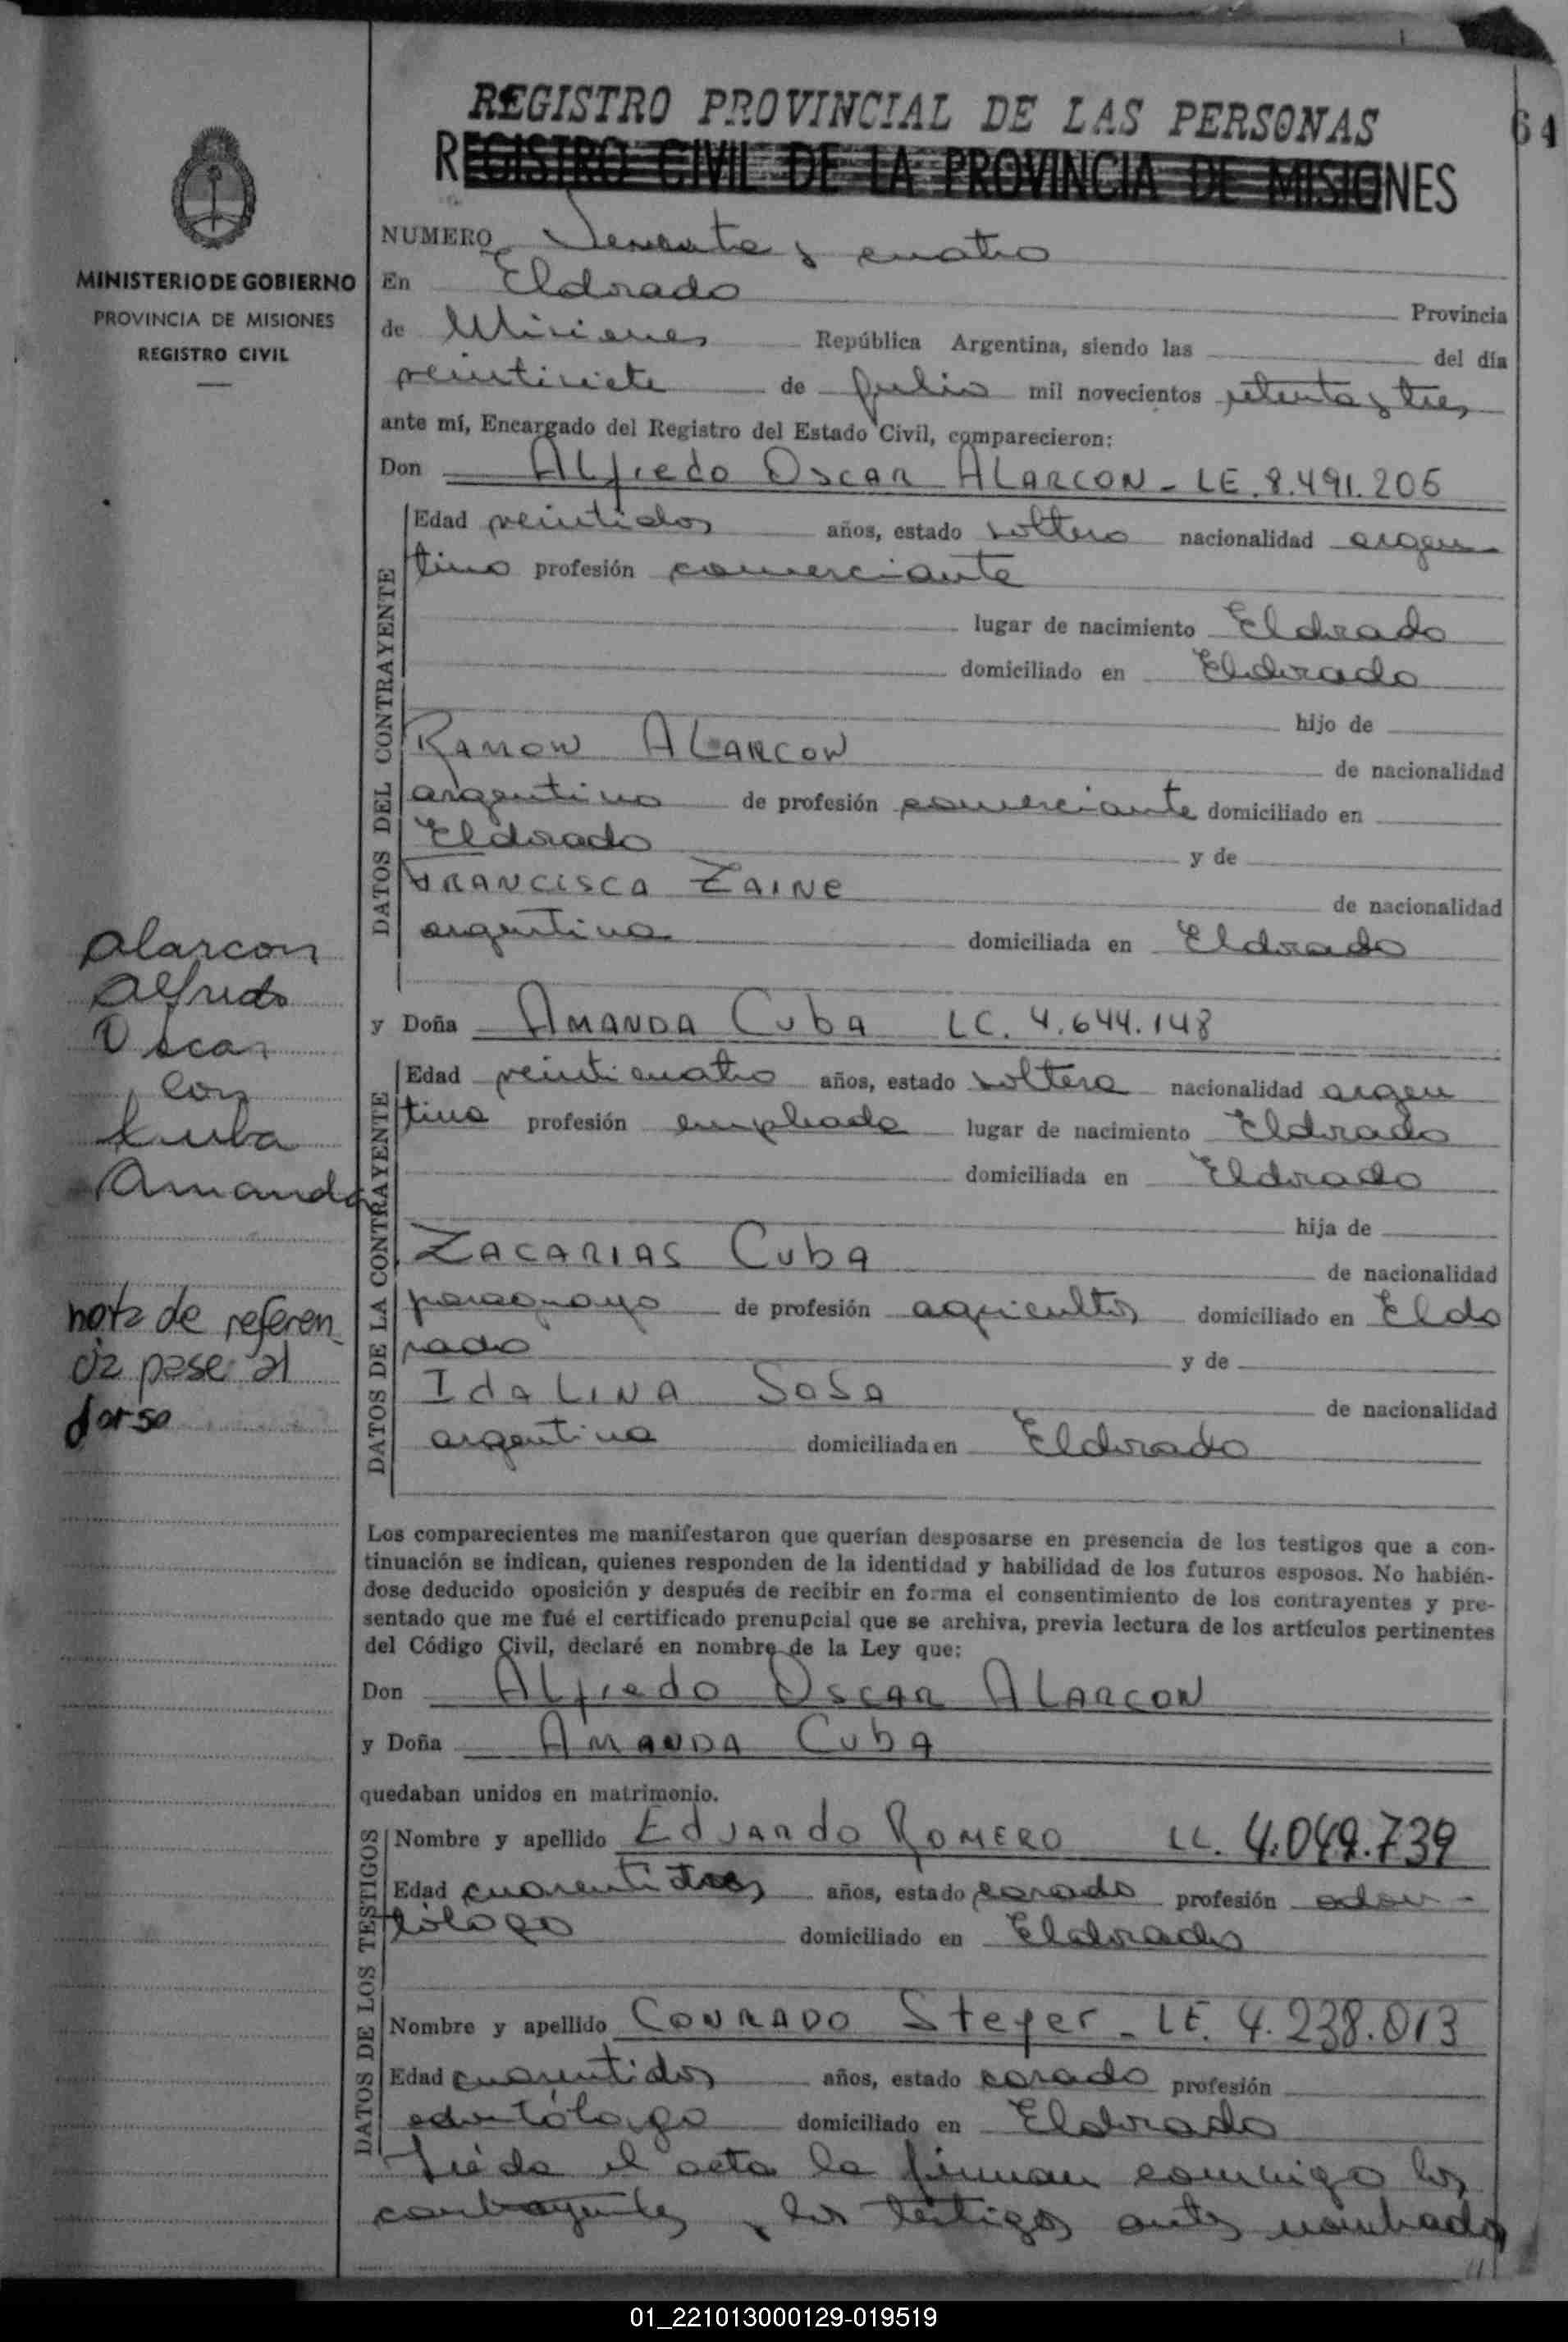 REGISTRO PROVINCIAL DE LAS PERSONAS
64
REGISTRO CIVIL DE LA PROVINCIA DE MISIONES
MINISTERIO DE GOBIERNO
PROVINCIA DE MISIONES
REGISTRO CIVIL
NUMERO Sesenta y cuatro
En Eldorado Provincia
de Misiones República Argentina, siendo las del día
veintisiete de julio mil novecientos setenta y tres
ante mí, Encargado del Registro del Estado Civil, comparecieron:
Don Alfredo Oscar ALARCON - LE. 8.491.206
DATOS DEL CONTRAYENTE
Edad veintidos años, estado soltero nacionalidad argen-
tino profesión comerciante
lugar de nacimiento Eldorado
domiciliado en Eldorado
hijo de
RAMON ALARCON de nacionalidad
argentino de profesión comerciante domiciliado en
Eldorado y de
FRANCISCA ZAINE de nacionalidad
argentina domiciliada en Eldorado
Alarcon
Alfredo
Oscar
con
Cuba
Amanda
y Doña AMANDA Cuba LC. 4.644.148
DATOS DE LA CONTRAYENTE
Edad veinticuatro años, estado soltera nacionalidad argen
tina profesión empleada lugar de nacimiento Eldorado
domiciliada en Eldorado
hija de
ZACARIAS Cuba de nacionalidad
paraguayo de profesión agricultor domiciliado en Eldo
rado y de
IdALINA SOSA de nacionalidad
argentina domiciliada en Eldorado
nota de referen
cia pase al
dorso
Los comparecientes me manifestaron que querían desposarse en presencia de los testigos que a con-
tinuación se indican, quienes responden de la identidad y habilidad de los futuros esposos. No habién-
dose deducido oposición y después de recibir en forma el consentimiento de los contrayentes y pre-
sentado que me fué el certificado prenupcial que se archiva, previa lectura de los artículos pertinentes
del Código Civil, declaré en nombre de la Ley que:
Don Alfredo Oscar ALARCON
y Doña AMANDA Cuba
quedaban unidos en matrimonio.
DATOS DE LOS TESTIGOS
Nombre y apellido EdUARdo ROMERO 4.049.739
Edad cuarentitres años, estado casado profesión odon-
tólogo domiciliado en Eldorado
Nombre y apellido CONRADO Steger - LE. 4.238.013
Edad cuarentidos años, estado casado profesión
odontólogo domiciliado en Eldorado
Leída el acta la firman conmigo los
contrayentes y los testigos antes nombrados
01_221013000129-019519